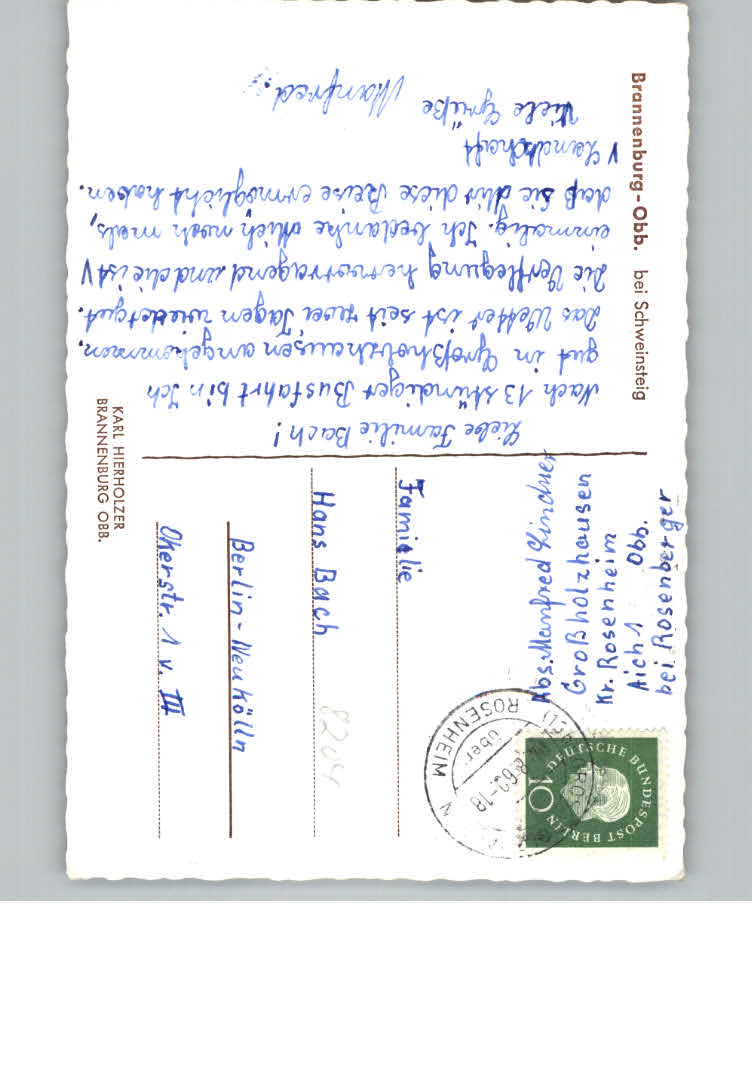 Brannenburg-Obb. bei Schweinsteig
Liebe Familie Bach!
Nach 13 stündiger Busfahrt bin Ich
gut in Großholzhausen angekommen.
Das Wetter ist seit zwei Tagen wieder gut.
Die Verpflegung hervorragend und die ist V
einmalig. Ich bedanke Mich noch mals,
daß Sie Mir diese Reise ermöglicht haben.
V Landschaft
Viele Grüße Manfred.
KARL HIERHOLZER
BRANNENBURG OBB.
Abs. Manfred Lindner
Großholzhausen
Kr. Rosenheim
Aich 1 Obb.
bei Rosenberger
DEUTSCHE BUNDESPOST BERLIN
10
über
ROSENHEIM
8.60-18
Familie
Hans Bach
8204
Berlin-Neukölln
Okerstr. 1 v. III